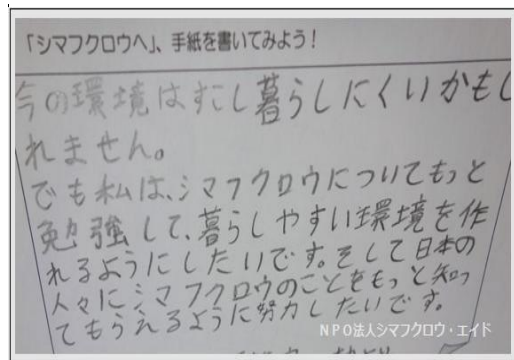 「シマフクロウへ」、手紙を書いてみよう！
今の環境はすこし暮らしにくいかもし
れません。
でも私は、シマフクロウについてもっと
勉強して、暮らしやすい環境を作
れるようにしたいです。そして日本の
人々にシマフクロウのことをもっと知っ
てもらえるように努力したいです。
NPO法人シマフクロウ・エイド